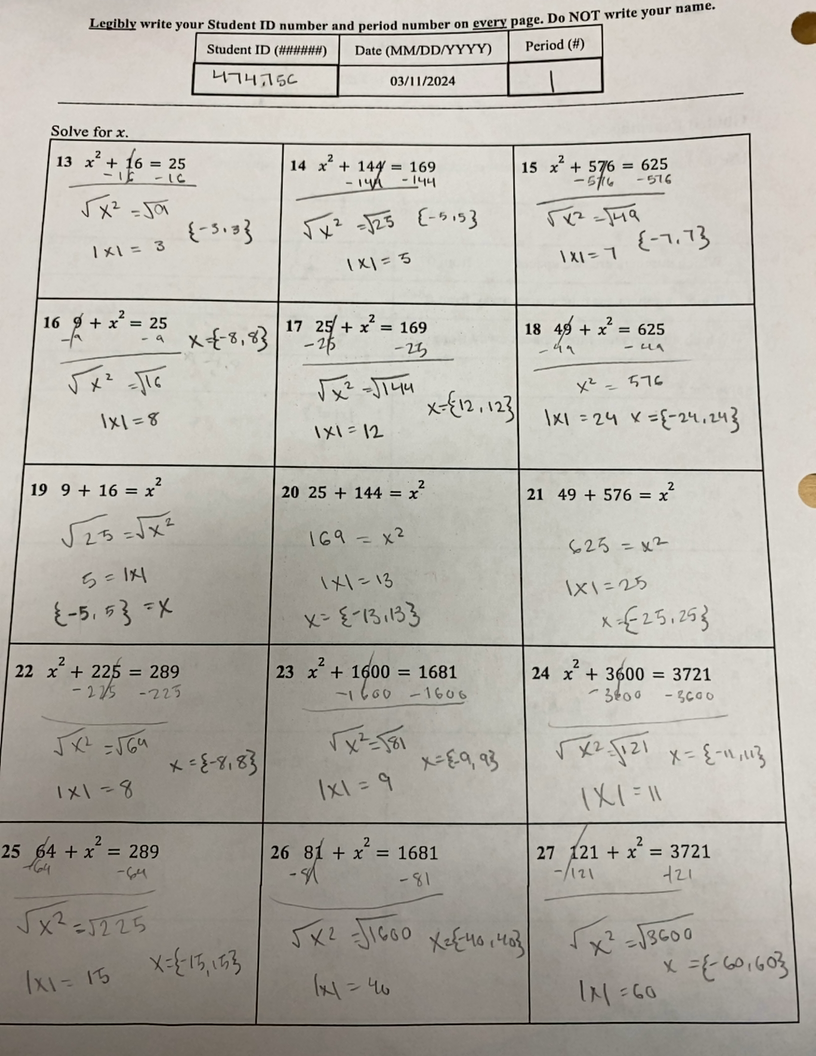 Legibly write your Student ID number and period number on every page. Do NOT write your name.
Student ID (######) Date (MM/DD/YYYY) Period (#)
03/11/2024 1
Solve for x.
13 x² + 16 = 25
-16 -16
√x² = √9
|x| = 3 {-3,3}
14 x² + 144 = 169
-144 -144
√x² = √25 {-5,5}
|x| = 5
15 x² + 576 = 625
-576 -576
√x² = √49
|x| = 7 {-7,7}
16 9 + x² = 25
-9 -9 x={-8,8}
√x² = √16
|x| = 8
17 25 + x² = 169
-25 -25
√x² = √144
|x| = 12 x={12,12}
18 49 + x² = 625
-49 -49
x² = 576
|x| = 24 x={-24,24}
19 9 + 16 = x²
√25 = √x²
5 = |x|
{-5,5} = x
20 25 + 144 = x²
169 = x²
|x| = 13
x = {-13,13}
21 49 + 576 = x²
625 = x²
|x| = 25
x={-25,25}
22 x² + 225 = 289
-225 -225
√x² = √64
|x| = 8 x={-8,8}
23 x² + 1600 = 1681
-1600 -1600
√x² = √81
|x| = 9 x={-9,9}
24 x² + 3600 = 3721
-3600 -3600
√x² = √121 x = {-11,11}
|x| = 11
25 64 + x² = 289
-64 -64
√x² = √225
|x| = 15 x={-15,15}
26 81 + x² = 1681
-81 -81
√x² = √1600 x={-40,40}
|x| = 40
27 121 + x² = 3721
-121 -121
√x² = √3600
x = {-60,60}
|x| = 60